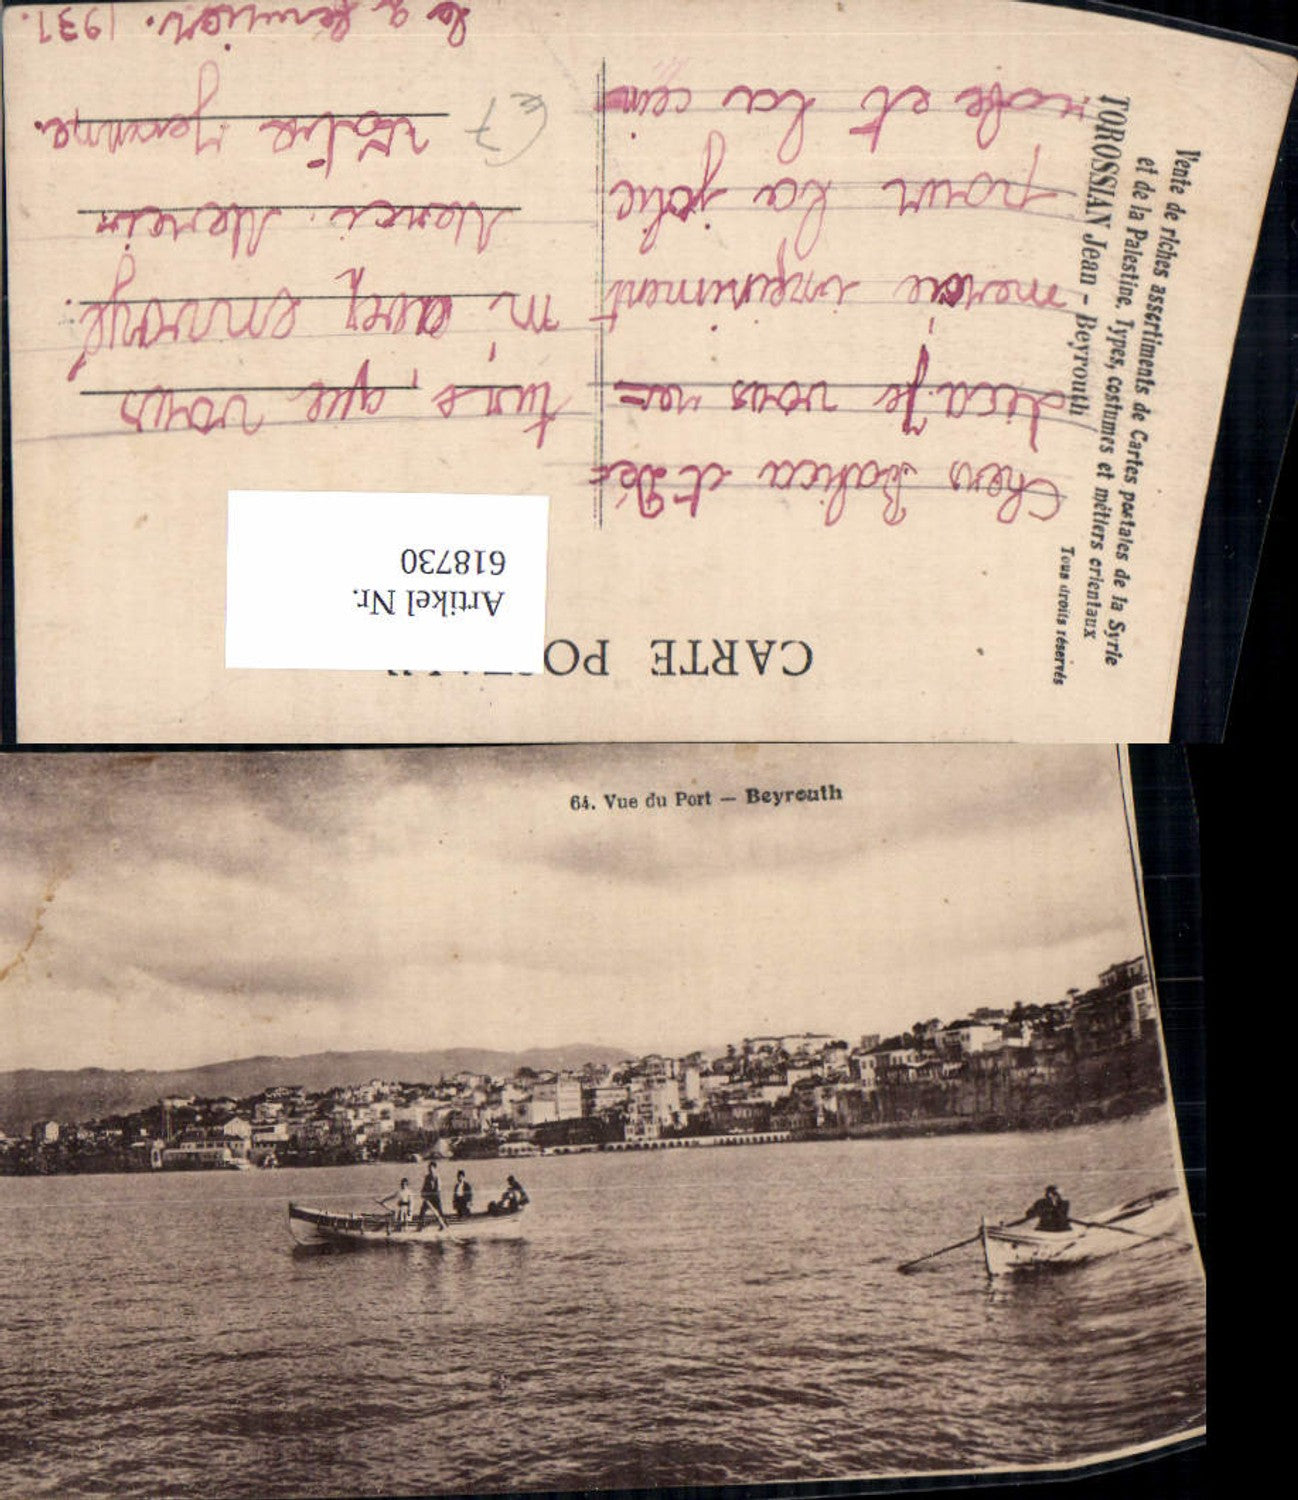 CARTE POSTALE
Artikel Nr.
618730
Vente de riches assortiments de Cartes postales de la Syrie
et de la Palestine, Types, costumes et métiers orientaux
TOROSSIAN Jean - Beyrouth
Tous droits réservés
Chers Badica et Dé=
dica, Je vous re=
mercie infiniment
pour la jolie
robe et la cein
ture, que vous
m'avez envoyé.
Merci. Merci
Votre
Le 2 février. 1931.
64. Vue du Port — Beyrouth